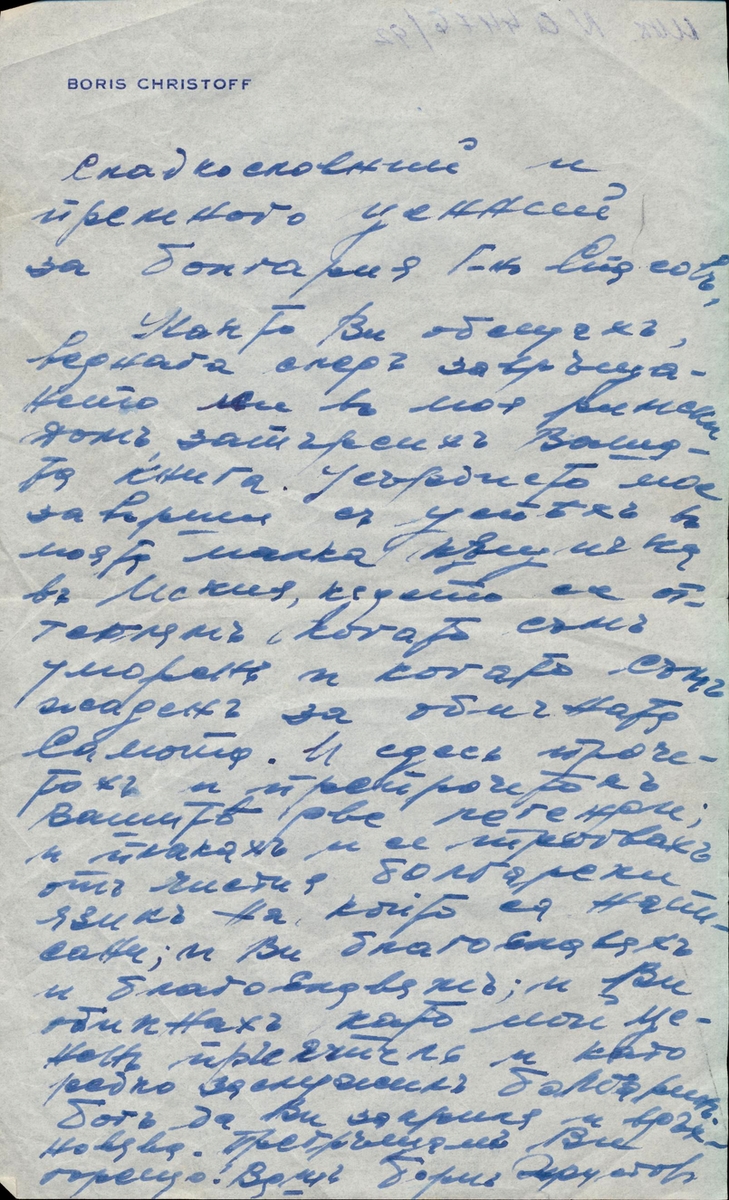 BORIS CHRISTOFF
Сладкословний и
премного ценний
за Болгария Г-нъ Спасовъ,
Както Ви обещахъ,
веднага следъ завръща-
нето ми въ моя римски
домъ, затърсихъ Ваша-
та книга. Усърдието мое
завърши съ успѣхъ въ
моята малка къщичка
въ Иския, кѫдето се от-
теглямъ когато съмъ
уморенъ и когато съмъ
жаденъ за обичната
Самота. И сдесь проче-
тохъ и препрочитохъ
Вашитѣ две легенди;
и плакахъ и се
отъ чистия болгарски
язикъ на който са напи-
сани; и Ви благославяхъ
и благославямъ; и Ви
обикнахъ като мой це-
ненъ приятель и като
редко заслужилъ болгаринъ.
Богъ да Ви закриля и вдъх-
новява. Прегръщамъ Ви
горещо. Вашъ Борис Христов